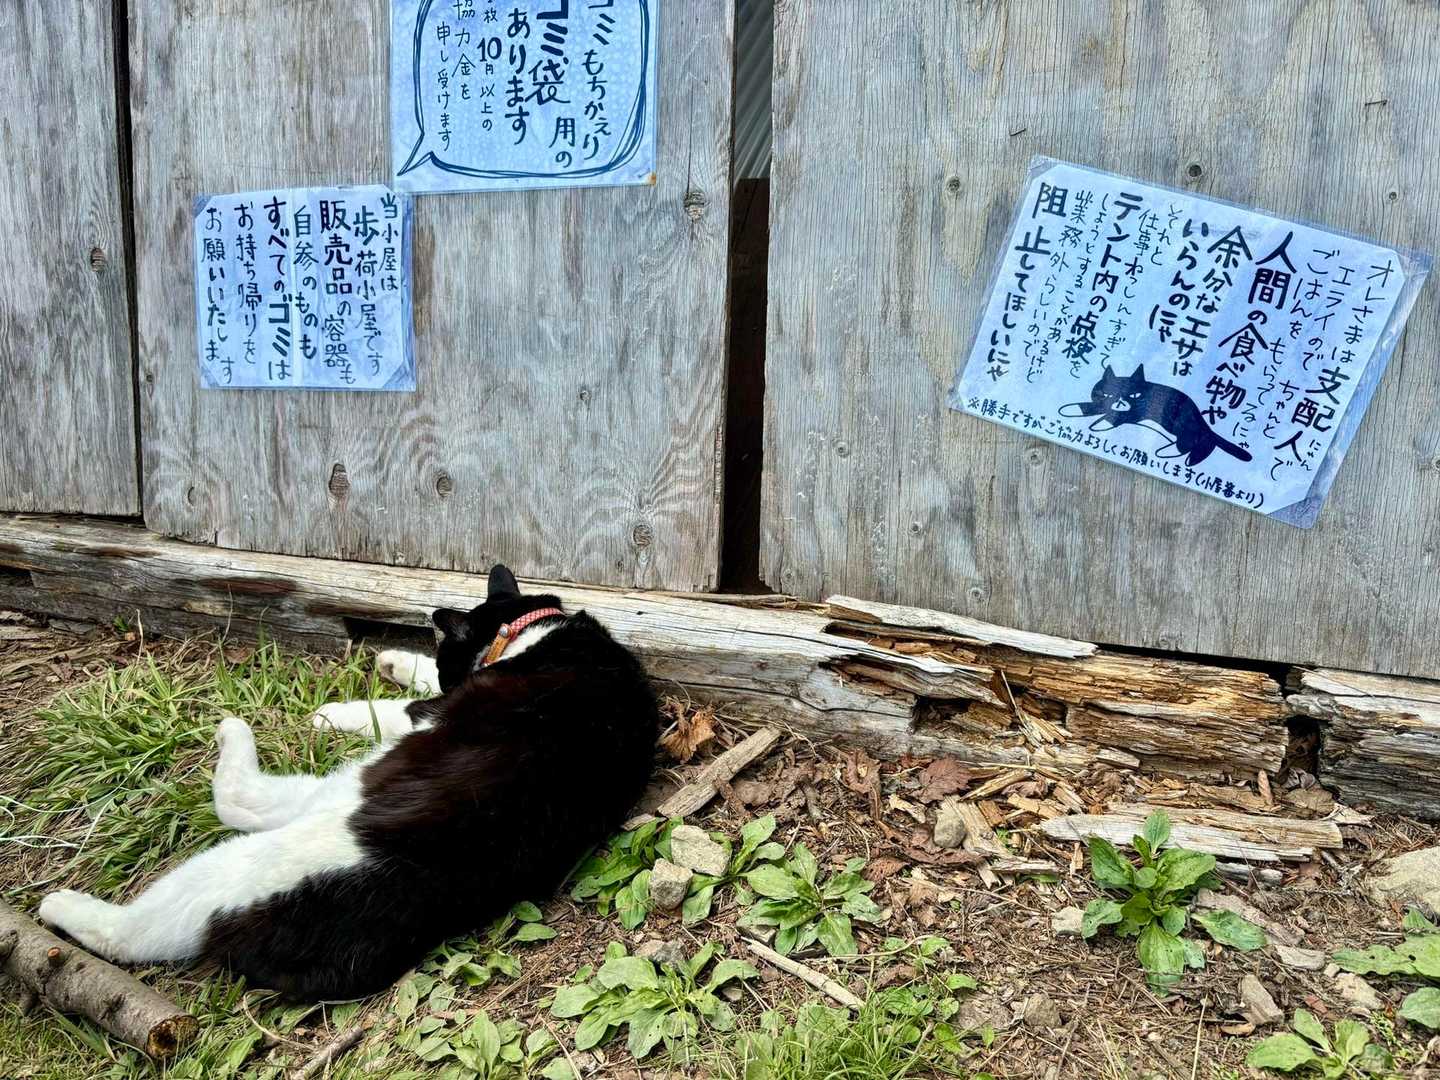 ゴミもちかえり
用の
ゴミ袋
あります
枚10円以上の
協力金を
申し受けます
当小屋は
歩荷小屋です
販売品の容器も
自参のものも
すべてのゴミは
お持ち帰りを
お願いいたします
オレさまは支配人で
にゃん
エライので ちゃんと
ごはんをもらってるにゃ
人間の食べ物や
余分なエサは
いらんのにゃ
それと
仕事ねっしんすぎて
テント内の点検を
しようとすることがあるけど
業務外らしいので
阻止してほしいにゃ
※勝手ですがご協力よろしくお願いします(小屋番より)